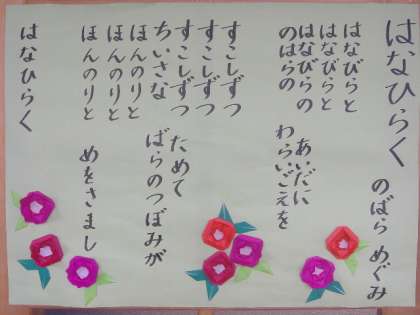 はなひらく
のばら めぐみ
はなびらと
はなびらと
はなびらの あいだに
のはらの わらいごえを
すこしずつ
すこしずつ
すこしずつ ためて
ちいさな ばらのつぼみが
ほんのりと
ほんのりと
ほんのりと めをさまし
はなひらく